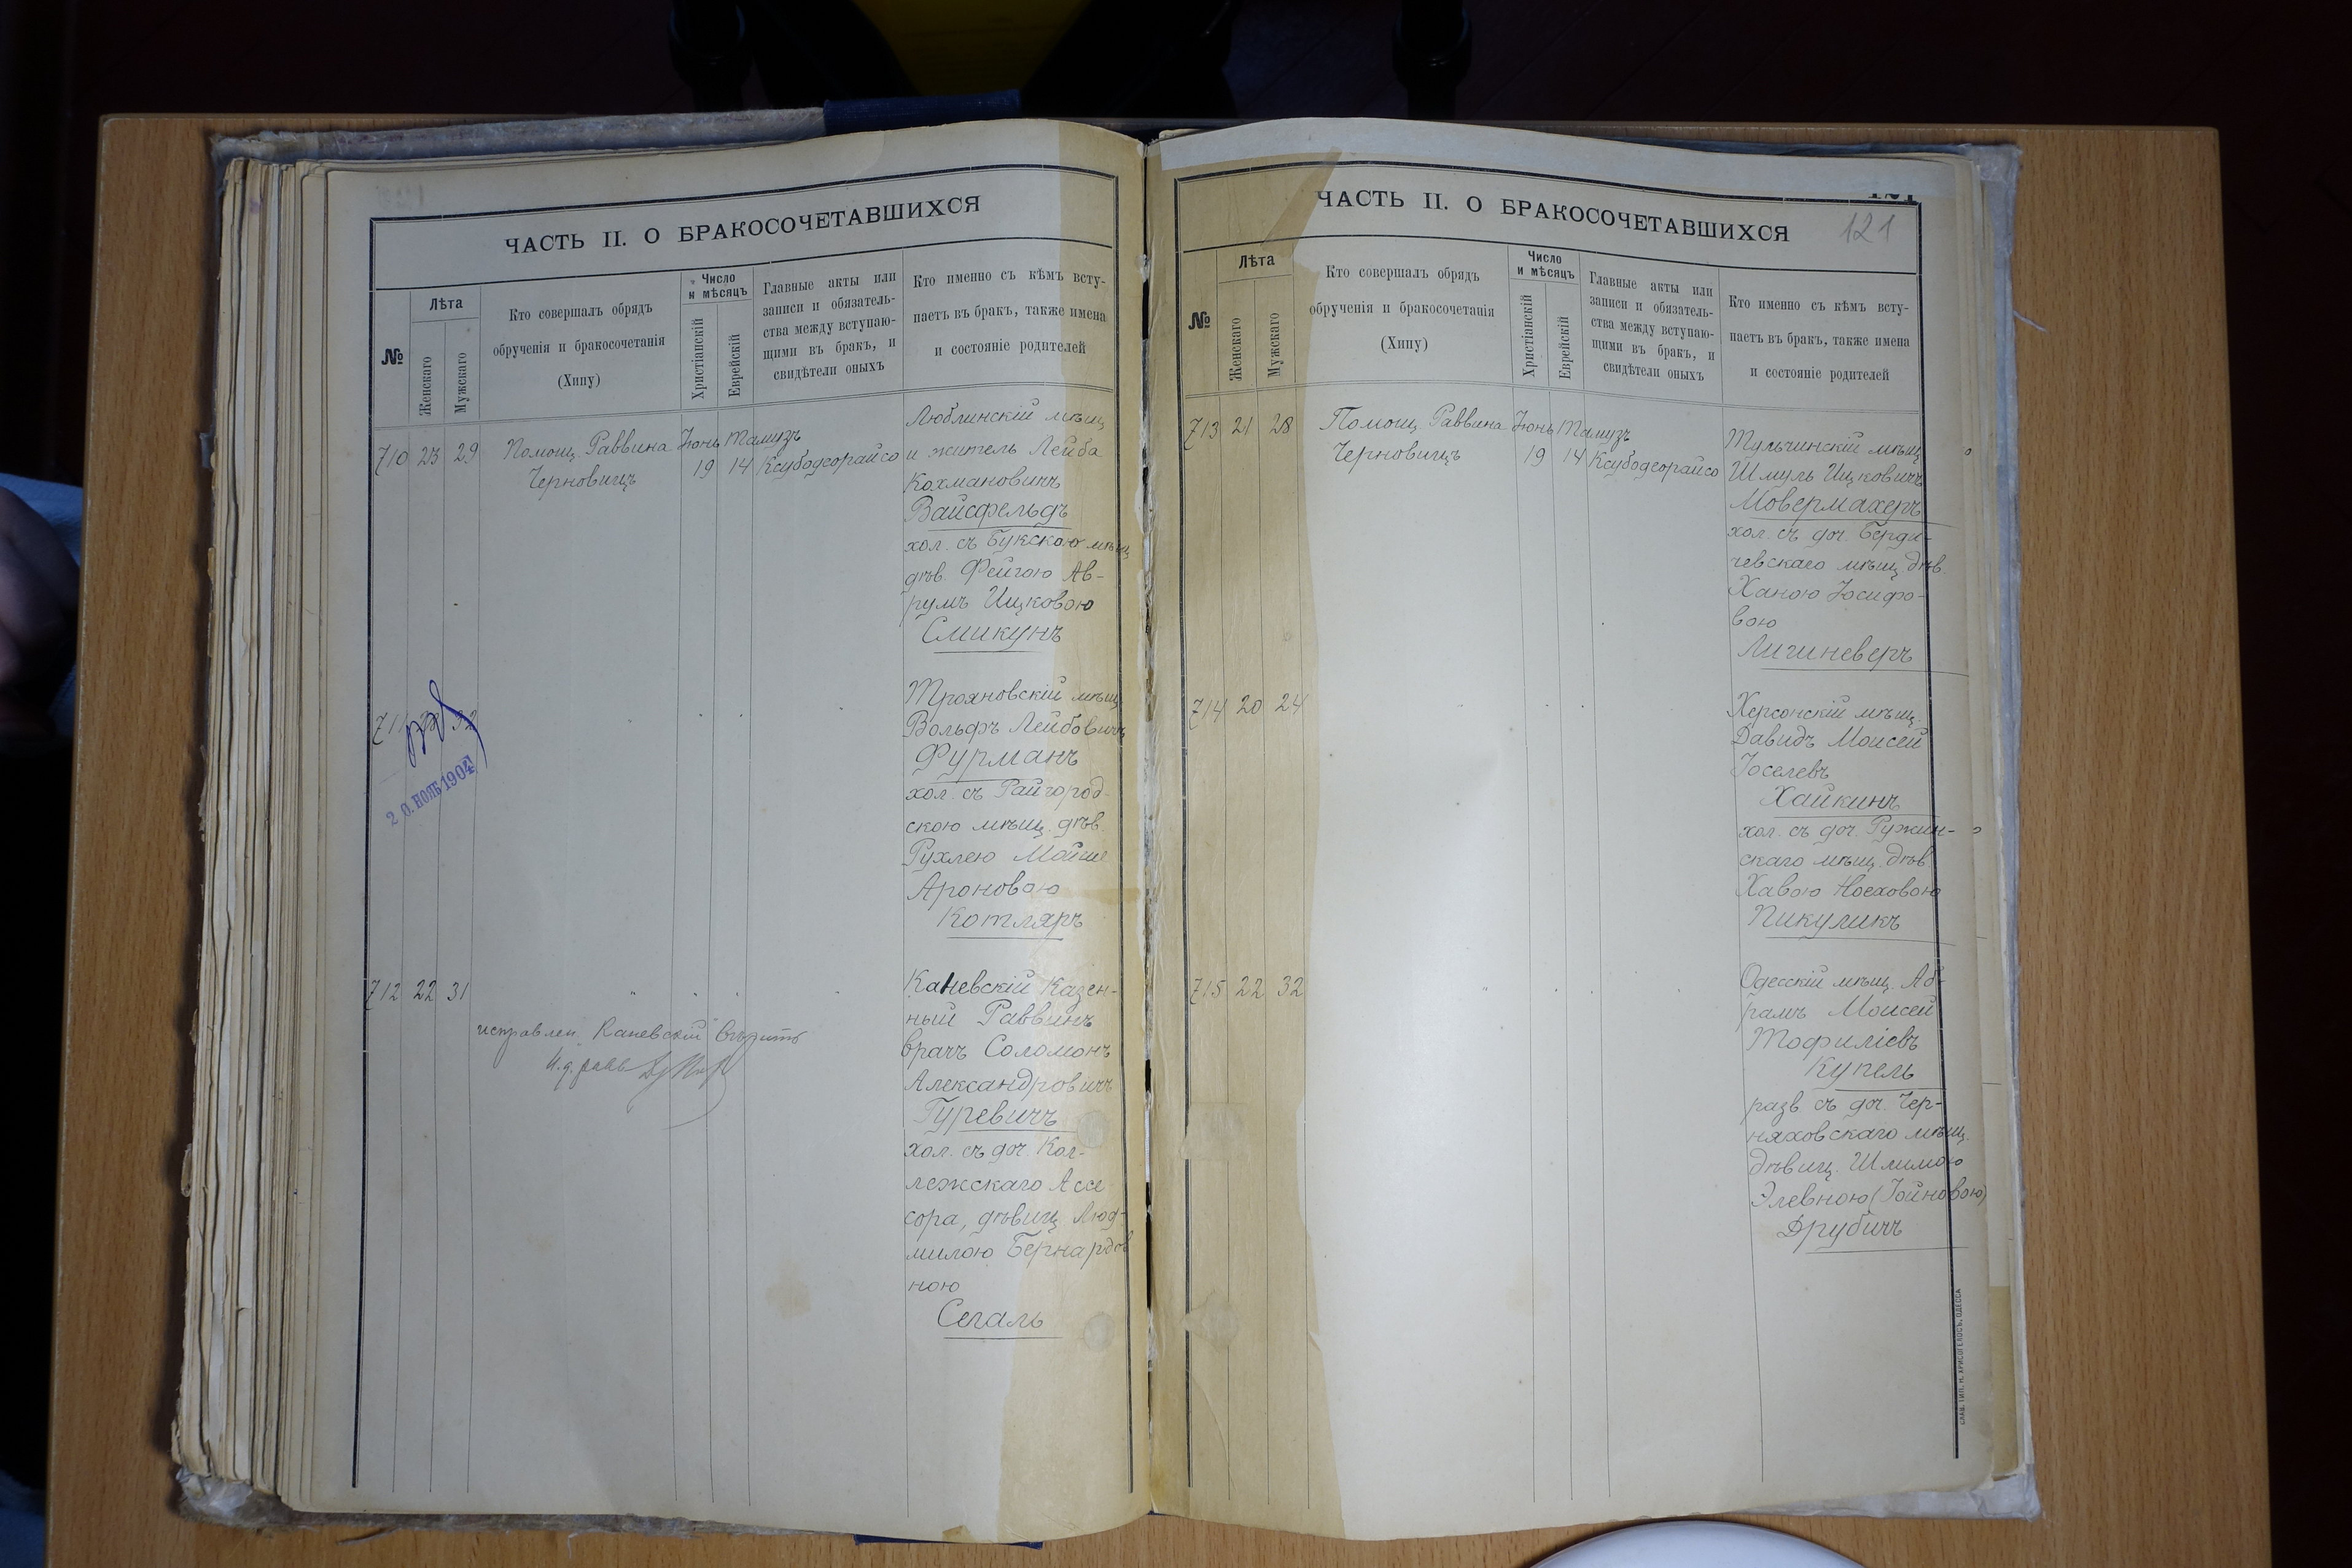 ЧАСТЬ II. О БРАКОСОЧЕТАВШИХСЯ
№
Лѣта
Женскаго
Мужскаго
Кто совершалъ обрядъ
обрученія и бракосочетанія
(Хипу)
Число
и мѣсяцъ
Христіанскій
Еврейскій
Главные акты или
записи и обязатель-
ства между вступаю-
щими въ бракъ, и
свидѣтели оныхъ
Кто именно съ кѣмъ всту-
паетъ въ бракъ, также имена
и состояніе родителей
710 23 29 Помощ. Раввина Іюнь Тамузъ
Черновицъ 19 14 Ксубодеорайсо
Люблинскій мѣщ
и житель Лейба
Кохмановичъ
Вайсфельдъ
хол. съ Букскою мѣщ
дѣв. Фейгою Ав-
румъ Ицковою
Смикунъ
711 32
2 0. НОЯБ 1904
Трояновскій мѣщ
Вольфъ Лейбовичъ
Фурманъ
хол. съ Райгород-
скою мѣщ. дѣв.
Рухлею Мойше
Ароновою
Котляръ
712 22 31 " " " " "
исправлен. Каневскій вѣрить
И. д. равв
Каневскій Казен-
ный Раввинъ
врачъ Соломонъ
Александровичъ
Гуревичъ
хол. съ доч. Кол-
лежскаго Ассе
сора, дѣвиц. Люд-
милою Бернардов
ною
Сегаль
ЧАСТЬ II. О БРАКОСОЧЕТАВШИХСЯ
121
№
Лѣта
Женскаго
Мужскаго
Кто совершалъ обрядъ
обрученія и бракосочетанія
(Хипу)
Число
и мѣсяцъ
Христіанскій
Еврейскій
Главные акты или
записи и обязатель-
ства между вступаю-
щими въ бракъ, и
свидѣтели оныхъ
Кто именно съ кѣмъ всту-
паетъ въ бракъ, также имена
и состояніе родителей
713 21 28 Помощ. Раввина Іюнь Тамузъ
Черновицъ 19 14 Ксубодеорайсо
Тульчинскій мѣщ
Шмуль Ицковичъ
Мовермахеръ
хол. съ доч. Берди-
чевскаго мѣщ. дѣв.
Ханою Іосифо-
вою
Лигиневеръ
714 20 24 " " " "
Херсонскій мѣщ.
Давидъ Моисей
Іоселевъ
Хайкинъ
хол. съ доч. Ружин-
скаго мѣщ. дѣв.
Хавою Ноеховою
Пикуликъ
715 22 32 " " " "
Одесскій мѣщ. Аб-
рамъ Моисей
Тофиліевъ
Купель
разв. съ доч. Чер-
няховскаго мѣщ.
дѣвиц. Шлимою
Элевною (Іойновою)
Друбичъ
СЛАВ. ТИП. Н. ХРИСОГЕЛОСЪ, ОДЕССА